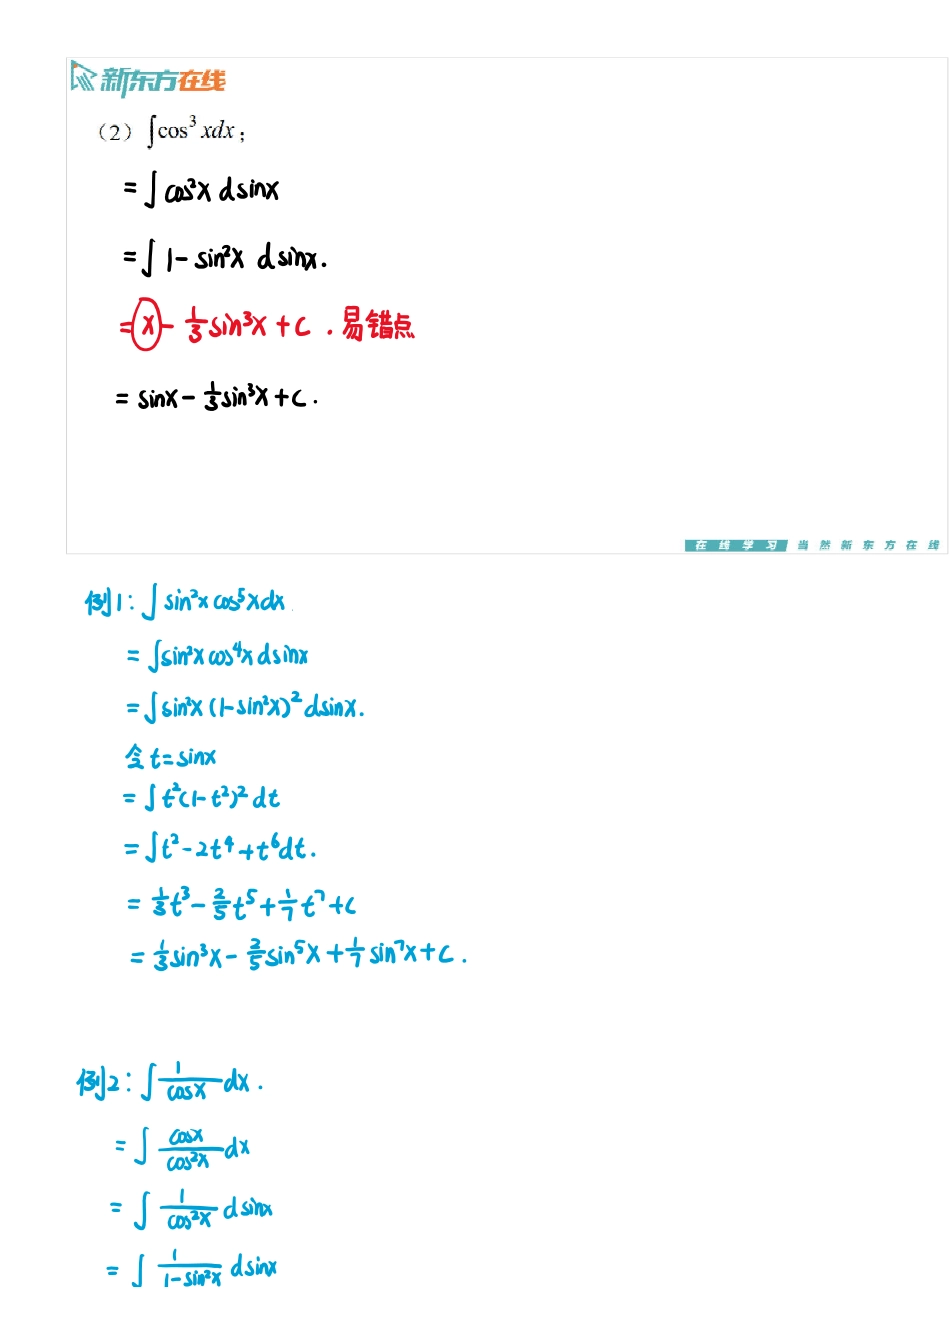 新东方在线
（2）∫cos³xdx；
=∫cos²x dsinx
=∫1-sin²x dsinx.
=x-⅓sin³x+C.易错点
=sinx-⅓sin³x+C.
在线学习 当然新东方在线
例1:∫sin²xcos⁵xdx
=∫sin²xcos⁴xdsinx
=∫sin²x(1-sin²x)²dsinx.
令t=sinx
=∫t²(1-t²)²dt
=∫t²-2t⁴+t⁶dt.
=1/3t³-2/5t⁵+1/7t⁷+C
=1/3sin³x-2/5sin⁵x+1/7sin⁷x+C.
例2:∫1/cosx dx.
=∫cosx/cos²x dx
=∫1/cos²x dsinx
=∫1/1-sin²x dsinx